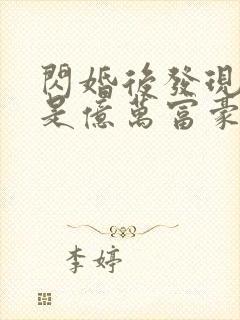 閃婚後發現
是億萬富豪
李婷